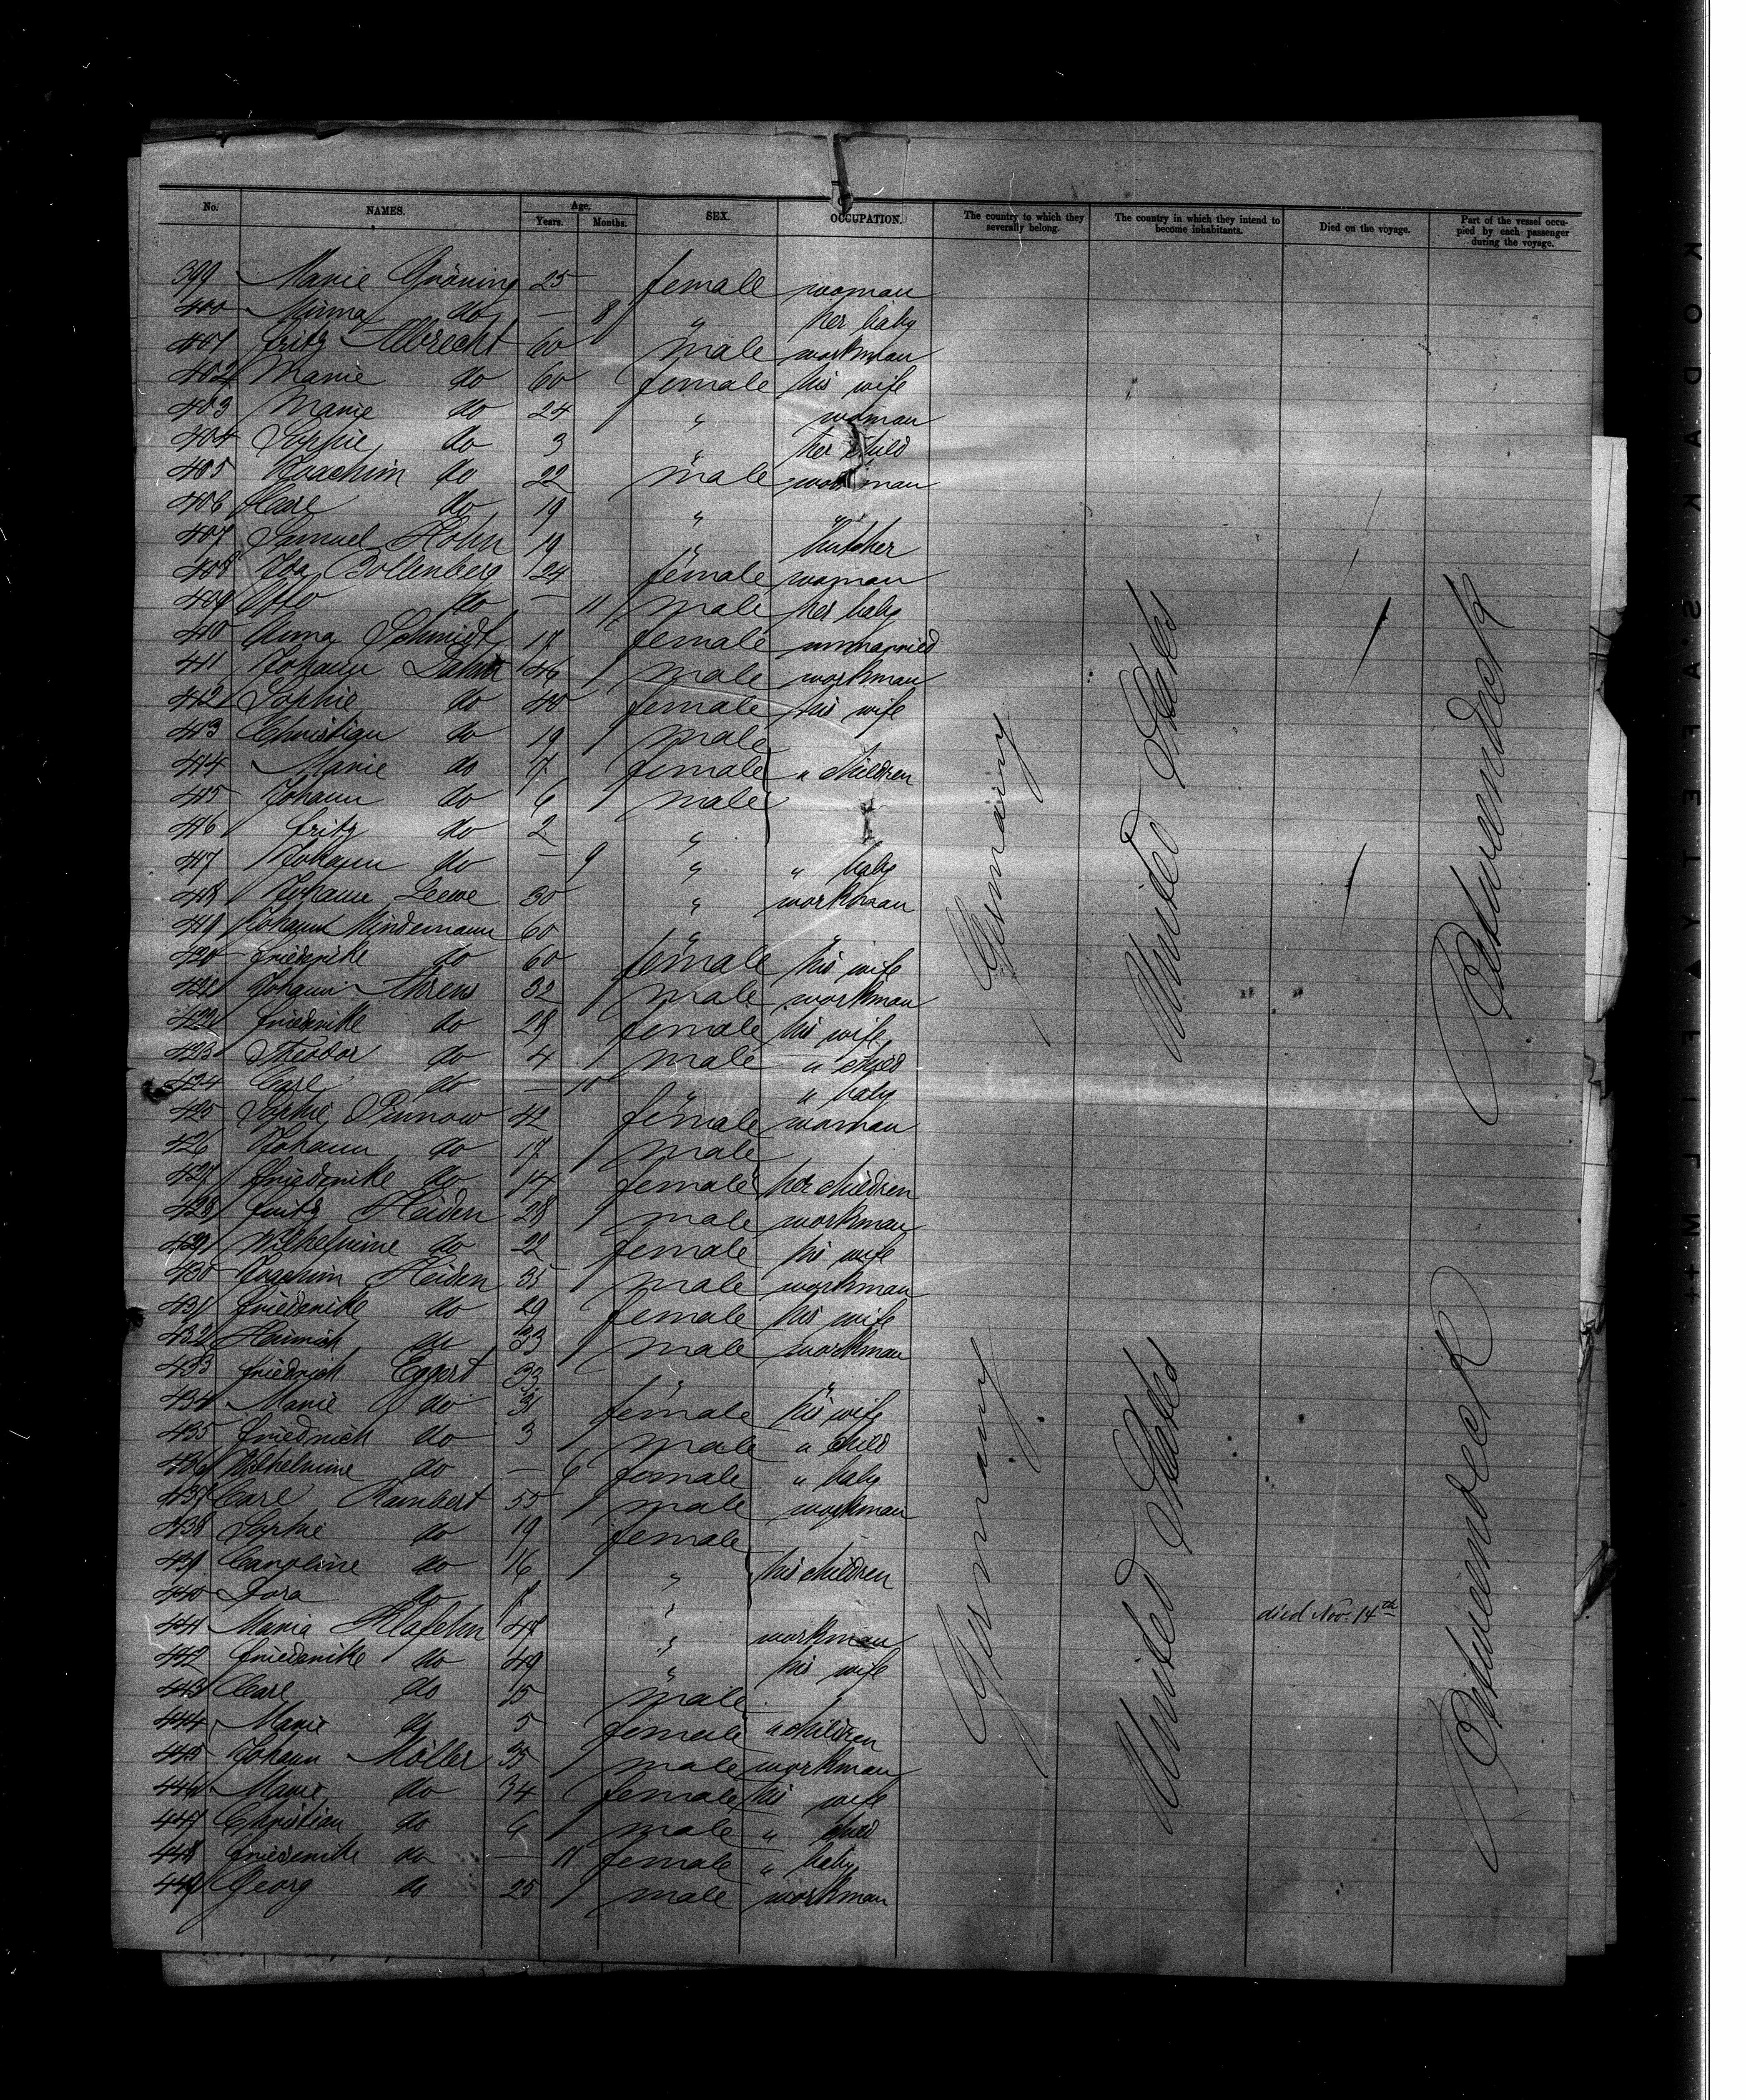 No. NAMES. Age. Years. Months. SEX. OCCUPATION. The country to which they severally belong. The country in which they intend to become inhabitants. Died on the voyage. Part of the vessel occupied by each passenger during the voyage.
399 Marie Gröning 25 female woman
400 Minna do — 8 " her baby
401 Fritz Albrecht 60 male workman
402 Marie do 60 female his wife
403 Marie do 24 " woman
404 Sophie do 3 " her child
405 Joachim do 22 male workman
406 Carl do 19 " "
407 Samuel Hohn 19 " butcher
408 Ida Bollenberg 24 female woman
409 Otto do — 11 male her baby
410 Anna Schmidt 17 female unmarried
411 Johann 46 male workman
412 Sophie do 40 female his wife
413 Christian do 19 male
414 Marie do 7 female " children
415 Johann do 6 male
416 Fritz do 2 "
417 Johann do — 9 " " baby
418 Johann Leewe 30 " workman
419 Johann Mindemann 60 " "
420 Friederike do 60 female his wife
421 Johann Ahrens 32 male workman
422 Friederike do 28 female his wife
423 Theodor do 4 male " child
424 Carl do — 10 " " baby
425 Sophie Pinnow 42 female woman
426 Johann do 17 male
427 Friederike do 14 female her children
428 Fritz Heiden 28 male workman
429 Wilhelmine do 22 female his wife
430 Joachim Heiden 35 male workman
431 Friederike do 29 female his wife
432 Heinrich do 23 male workman
433 Friedrich Eggert 33 " "
434 Marie do 31 female his wife
435 Friedrich do 3 male " child
436 Wilhelmine do — 6 female " baby
437 Carl Rambert 55 male workman
438 Sophie do 19 female
439 Caroline do 16 " his children
440 Dora do "
441 Maria Klafehn 48 " workman died Nov. 14th
442 Friederike do 49 " his wife
443 Carl do 15 male
444 Marie do 5 female " children
445 Johann Möller 35 male workman
446 Marie do 34 female his wife
447 Christian do 6 male " child
448 Friederike do — 11 female " baby
449 Georg do 25 male workman
Germany
United States
Betweendeck
Germany
United States
Betweendeck
KODAK SAFETY FILM